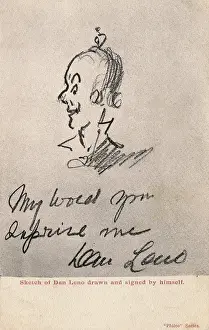 My word you
surprise me
Dan Leno
Sketch of Dan Leno drawn and signed by himself.
"Photo"